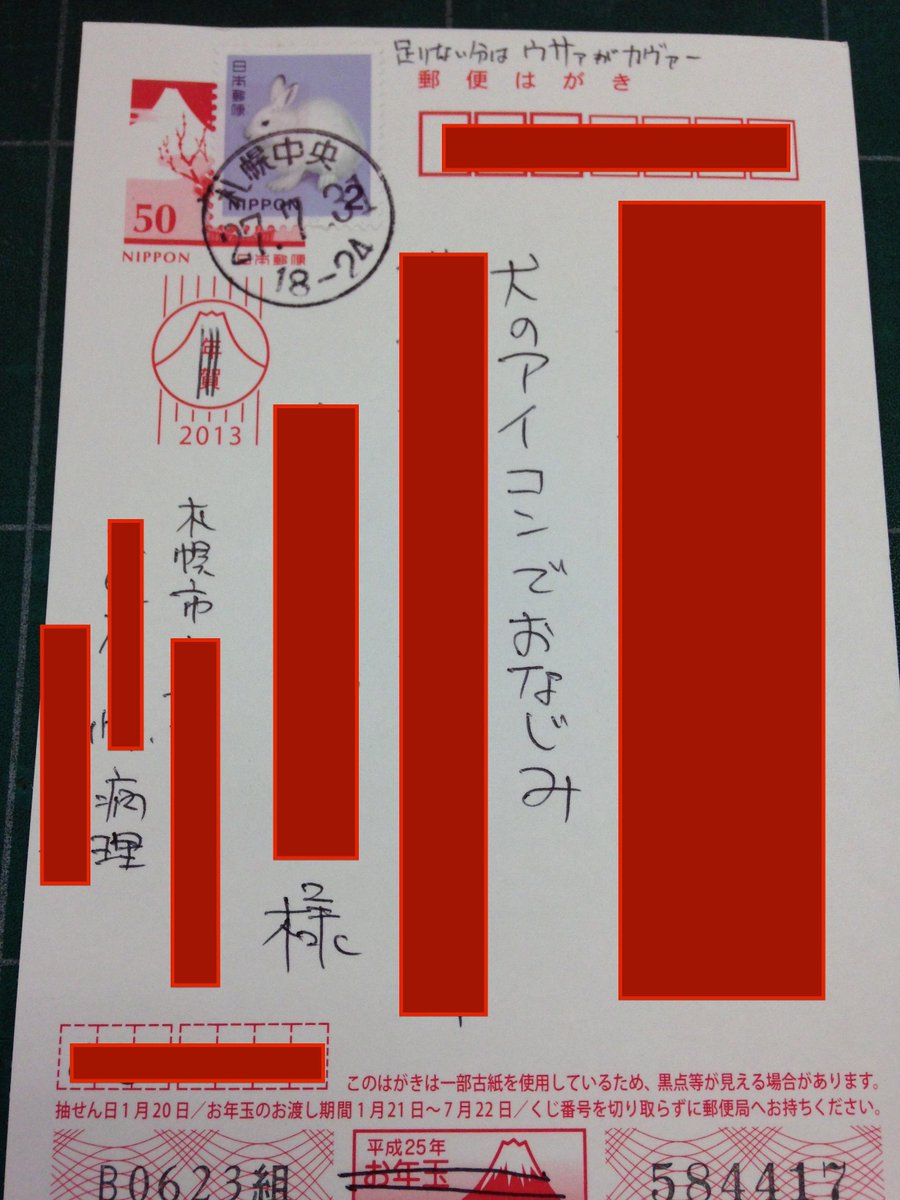 足りない分は ウサァがカヴァー
郵便はがき
日本郵便
NIPPON
50
NIPPON
日本郵便
札幌中央
27.7
18-24
年賀
2013
犬のアイコンでおなじみ
様
札幌市
病理
このはがきは一部古紙を使用しているため、黒点等が見える場合があります。
抽せん日1月20日/お年玉のお渡し期間1月21日〜7月22日/くじ番号を切り取らずに郵便局へお持ちください。
B0623組
平成25年
お年玉
584417